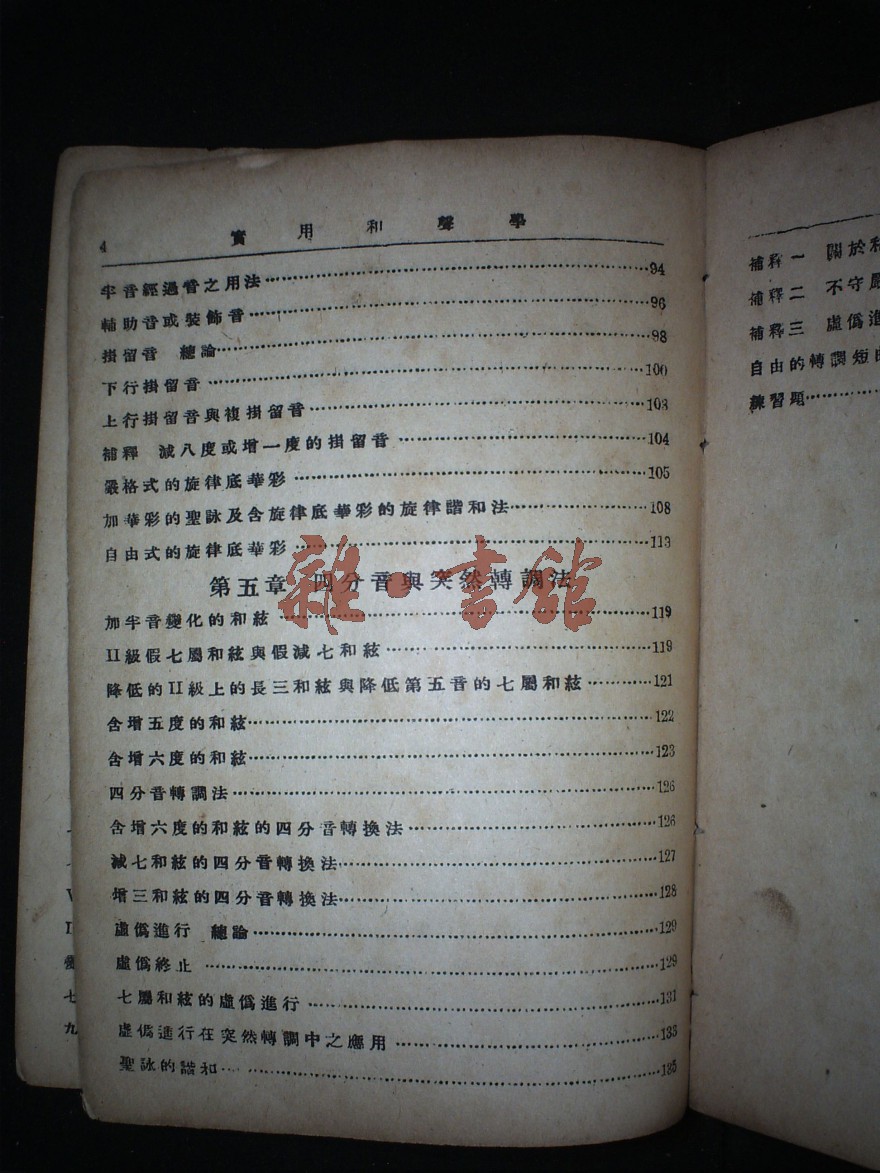 4 實用和聲學
半音經過音之用法 94
輔助音或裝飾音 96
掛留音 總論 98
下行掛留音 100
上行掛留音與複掛留音 103
補釋 減八度或增一度的掛留音 104
嚴格式的旋律底華彩 105
加華彩的聖詠及含旋律底華彩的旋律諧和法 108
自由式的旋律底華彩 113
第五章 四分音與突然轉調法
加半音變化的和絃 119
II級假七屬和絃與假減七和絃 119
降低的II級上的長三和絃與降低第五音的七屬和絃 121
含增五度的和絃 122
含增六度的和絃 123
四分音轉調法 126
含增六度的和絃的四分音轉換法 126
減七和絃的四分音轉換法 127
增三和絃的四分音轉換法 128
虛僞進行 總論 129
虛僞終止 129
七屬和絃的虛僞進行 131
虛僞進行在突然轉調中之應用 133
聖詠的諧和 135
雜·書館
補釋一 關於和
補釋二 不守嚴
補釋三 虛僞進
自由的轉調短曲
練習題
V
七
九